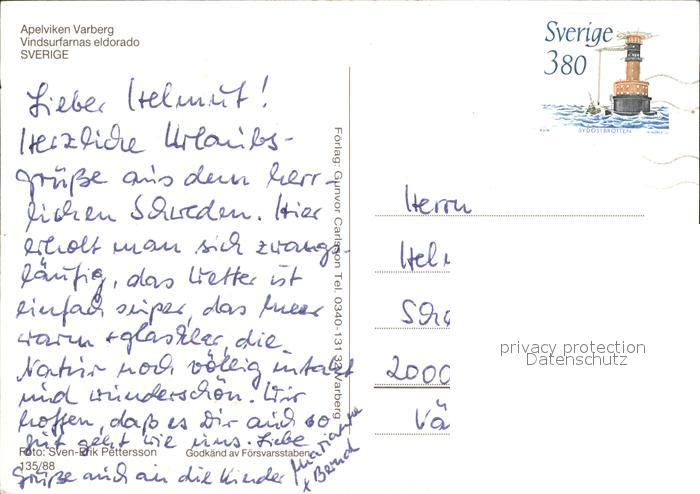 Apelviken Varberg
Vindsurfarnas eldorado
SVERIGE
Sverige
380
SYDOSTBROTTEN
Lieber Helmut!
Herzliche Urlaubs-
grüße aus dem herr-
lichen Schweden. Hier
erholt man sich zwangs-
läufig, das Wetter ist
einfach super, das Meer
warm + glasklar, die
Natur noch völlig intakt
und wunderschön. Wir
hoffen, daß es Dir auch so
gut geht wie uns. Liebe
Grüße auch an die Kinder
Marianne
+ Bernd
Foto: Sven-Erik Pettersson
135/88
Godkänd av Försvarsstaben
Förlag: Gunvor Carlsson Tel. 0340-131 33 Varberg
Herrn
Hel
Sch
2000
Vä
privacy protection
Datenschutz